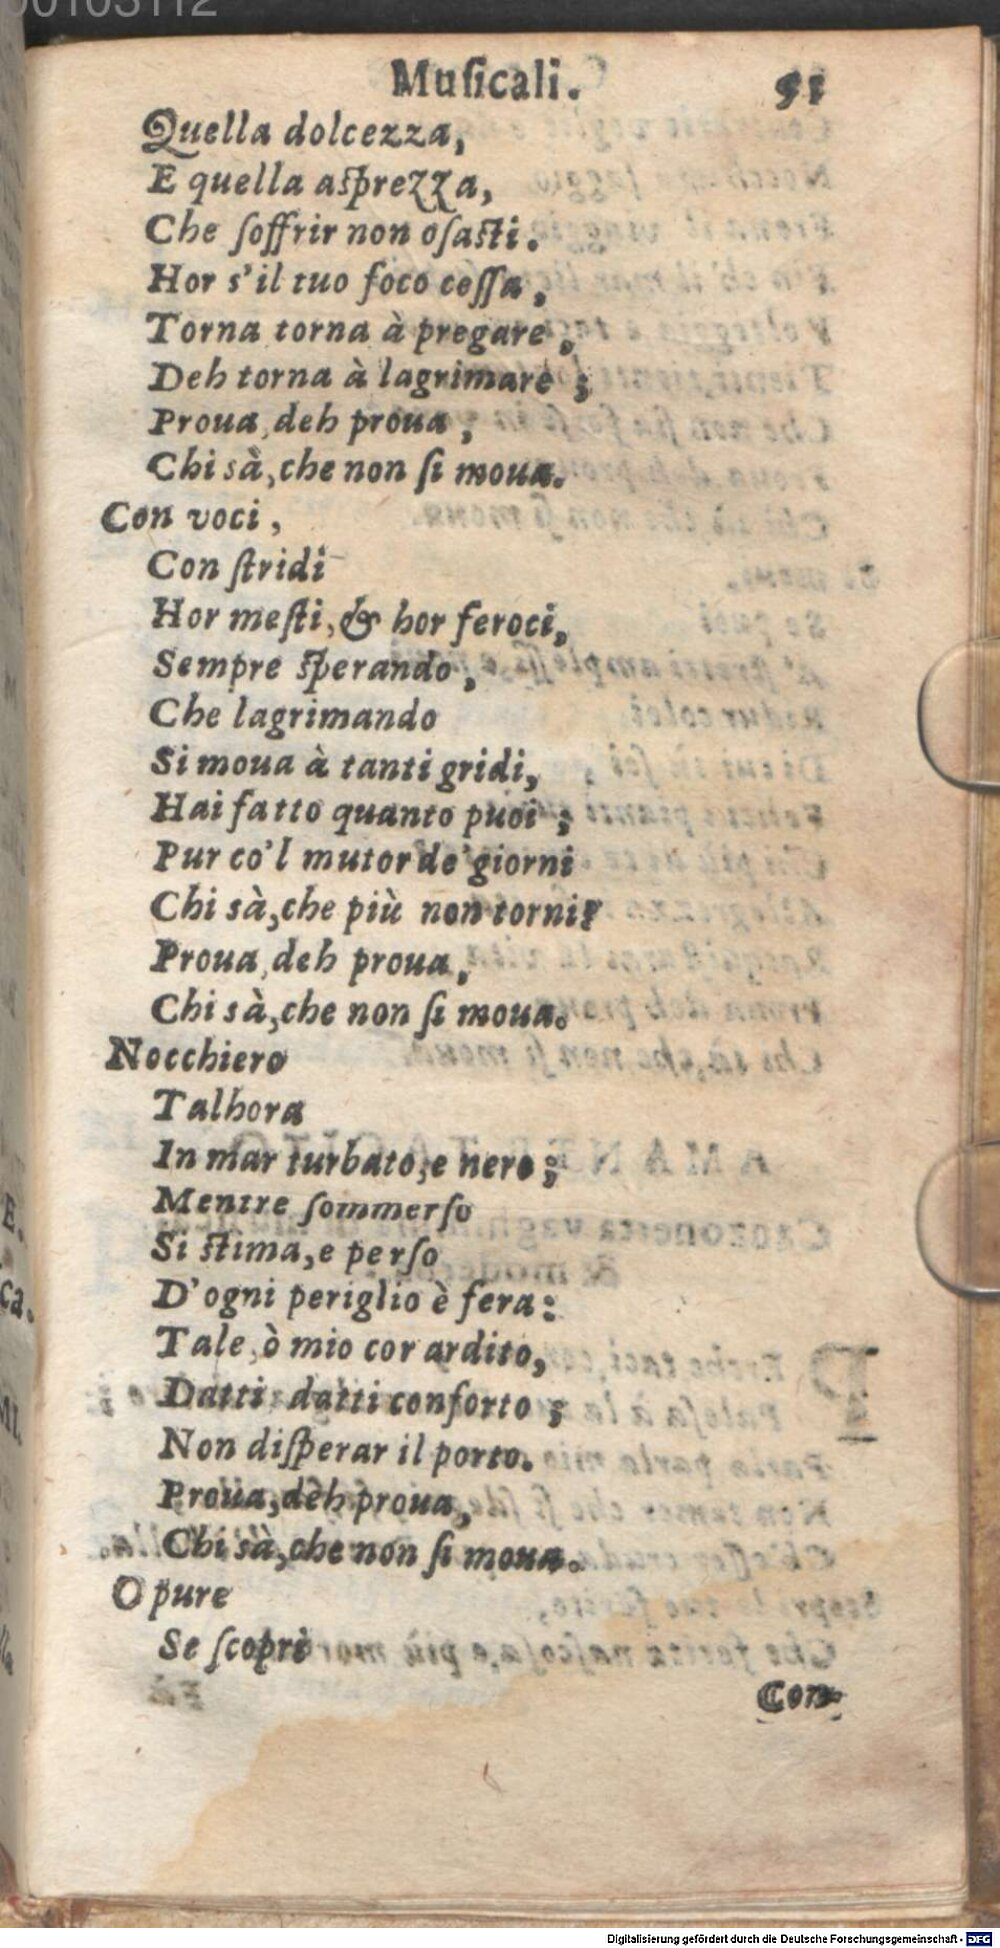 00103112
Muſicali. 51
Quella dolcezza,
E quella aſprezza,
Che ſoffrir non oſaſti.
Hor s'il tuo foco ceſſa,
Torna torna à pregare,
Deh torna à lagrimare;
Proua, deh proua,
Chi sà, che non ſi moua.
Con voci,
Con ſtridi
Hor meſti, & hor feroci,
Sempre ſperando,
Che lagrimando
Si moua à tanti gridi,
Hai fatto quanto puoi;
Pur co'l mutor de' giorni
Chi sà, che più non torni?
Proua, deh proua,
Chi sà, che non ſi moua.
Nocchiero
Talhora
In mar turbato, e nero;
Mentre ſommerſo
Si ſtima, e perſo
D'ogni periglio è fera:
Tale, ò mio cor ardito,
Datti, datti conforto;
Non diſperar il porto.
Proua, deh proua,
Chi sà, che non ſi moua.
O pure
Se ſcopri
Con-
Digitalisierung gefördert durch die Deutsche Forschungsgemeinschaft - DFG